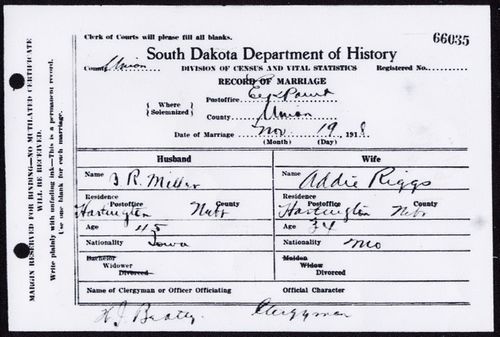 Clerk of Courts will please fill all blanks.
66035
South Dakota Department of History
County Union DIVISION OF CENSUS AND VITAL STATISTICS Registered No.
RECORD OF MARRIAGE
Postoffice Elk Point
{ Where Solemnized }
County Union
Date of Marriage Nov 19 1918
(Month) (Day)
Husband Wife
Name J. R. Miller Name Addie Riggs
Residence Residence
Postoffice County Postoffice County
Hartington Nebr Hartington Nebr
Age 45 Age 34
Nationality Iowa Nationality Mo
Bachelor Maiden
Widower Widow
Divorced Divorced
Name of Clergyman or Officer Officiating Official Character
H. J. Beatty Clergyman
MARGIN RESERVED FOR BINDING—NO MUTILATED CERTIFICATE
WILL BE RECEIVED.
Write plainly with unfading ink—This is a permanent record.
Use one blank for each marriage.